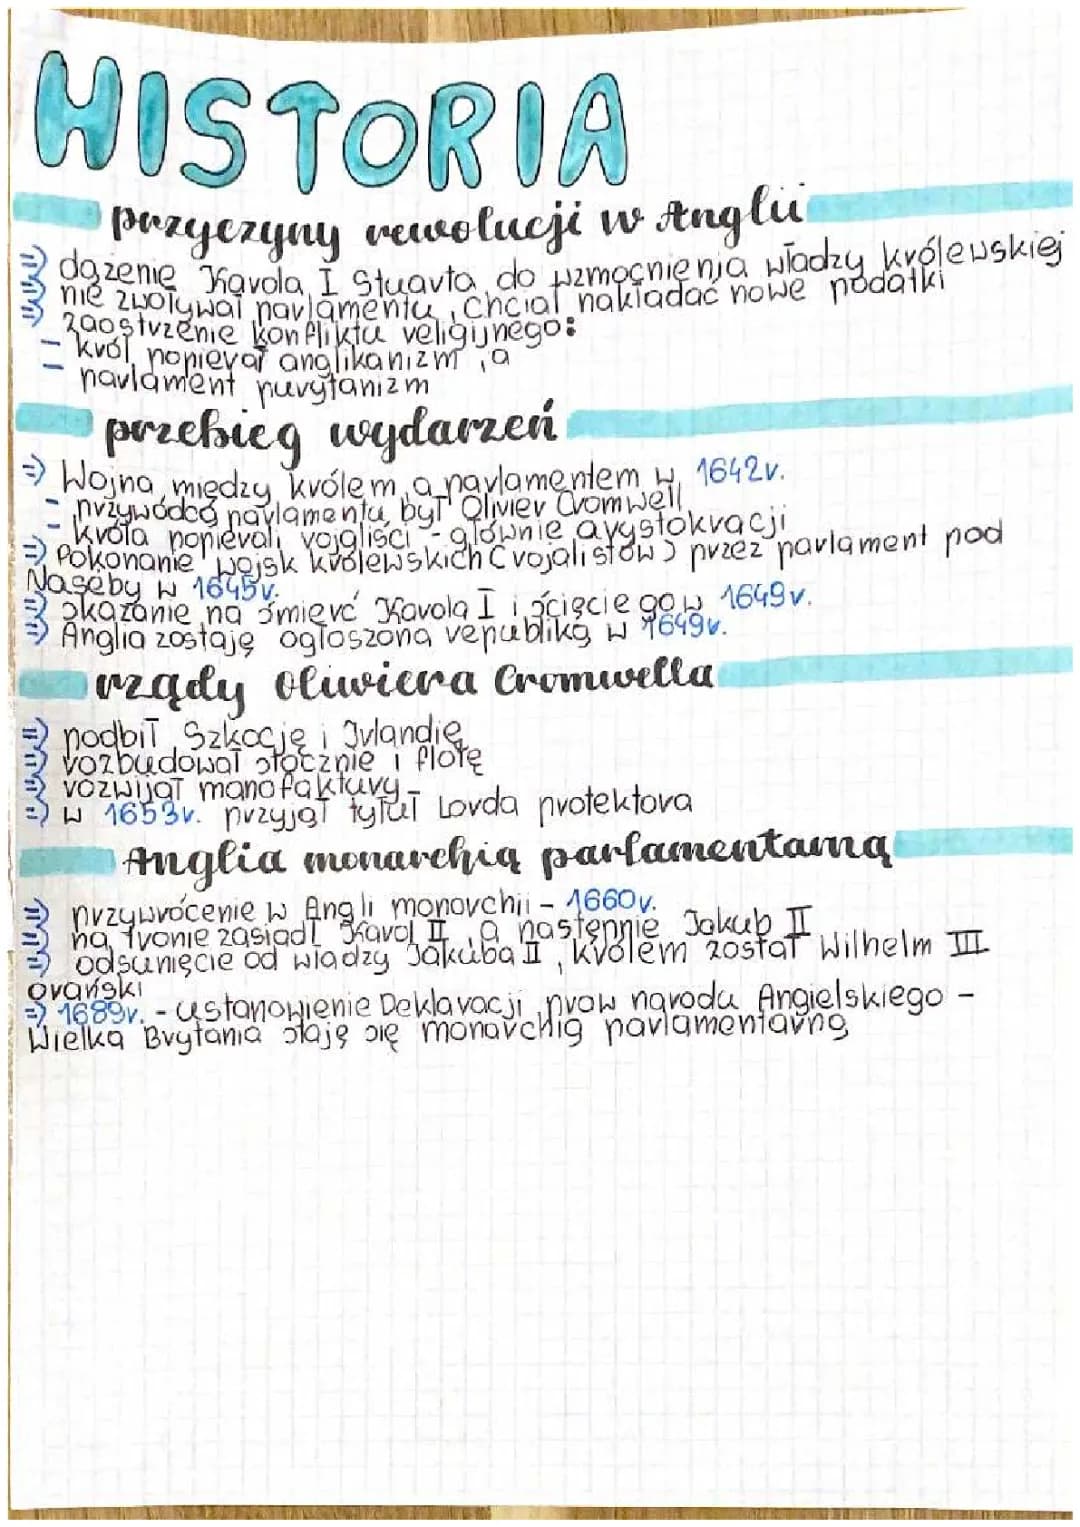 HISTORIA
przyczyny rewolucji w Anglii
=> dążenie Karola I Stuarta do wzmocnienia władzy królewskiej
=> nie zwoływał parlamentu, chciał nakładać nowe podatki
=> zaostrzenie konfliktu religijnego:
- król popierał anglikanizm, a
- parlament purytanizm
przebieg wydarzeń
=> Wojna między królem a parlamentem w 1642r.
- przywódcą parlamentu był Olivier Cromwell
- króla popierali rojaliści - głównie arystokracji
=> Pokonanie wojsk królewskich (rojalistów) przez parlament pod
Naseby w 1645r.
=> skazanie na śmierć Karola I i ścięcie go w 1649r.
=> Anglia zostaję ogłoszona republiką w 1649r.
rządy Oliwiera Cromwella
=> podbił Szkocję i Irlandię
=> rozbudował stocznie i flotę
=> rozwijał manofaktury
=> w 1653r. przyjął tytuł Lorda protektora
Anglia monarchią parlamentarną
=> przywrócenie w Angli monorchii - 1660r.
=> na tronie zasiadł Karol II, a następnie Jakub II
=> odsunięcie od władzy Jakuba II, królem został Wilhelm III
orański
=> 1689r. - ustanowienie Deklaracji praw narodu Angielskiego -
Wielka Brytania staję się monarchią parlamentarną